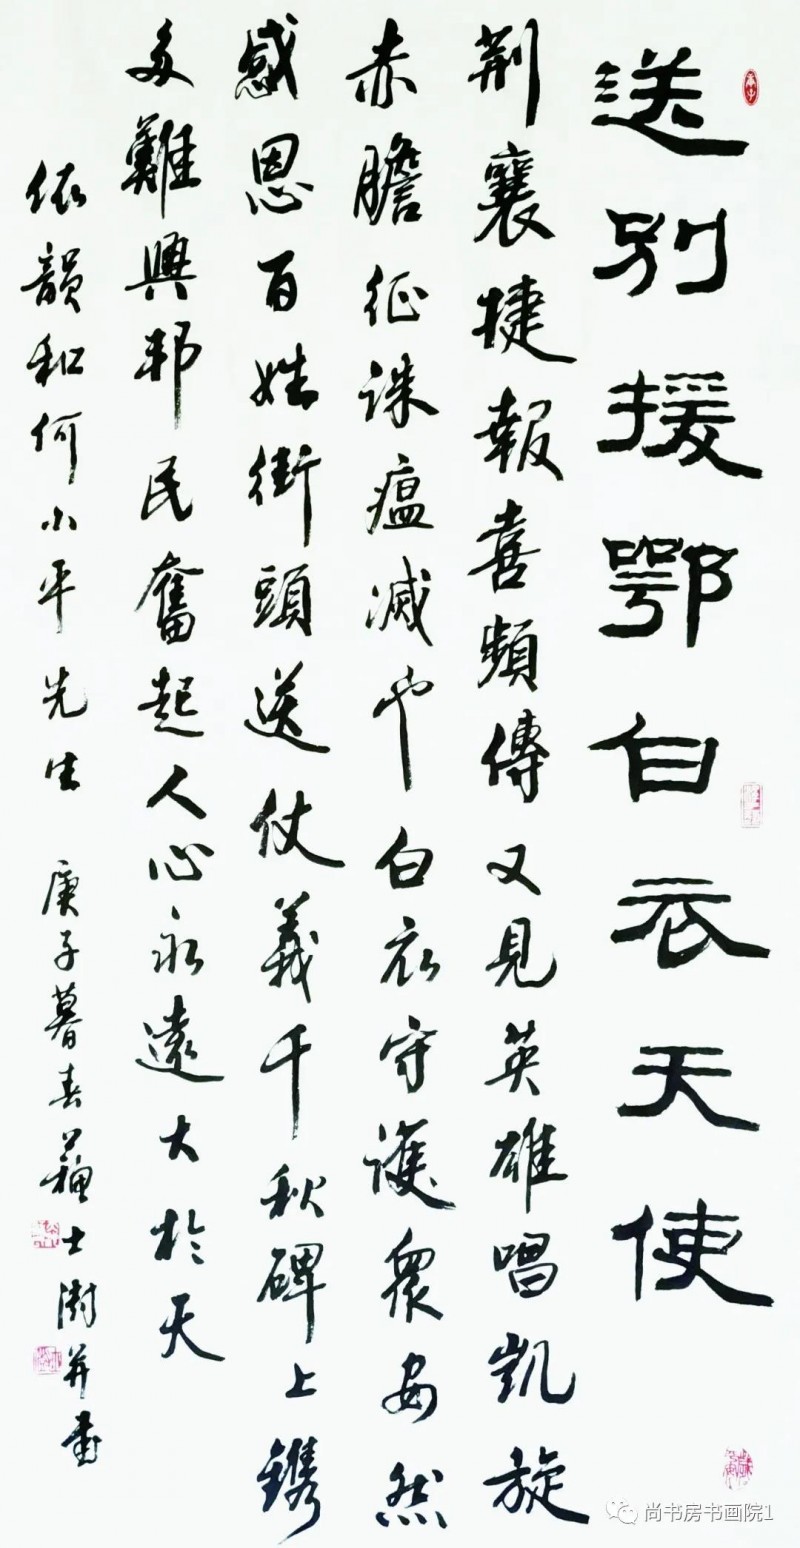 送别援鄂白衣天使
荆襄捷報喜頻傳又見英雄唱凱旋
赤膽征誅瘟滅也白衣守護衆安然
感恩百姓街頭送仗義千秋碑上鐫
多難興邦民奮起人心永遠大於天
依韻和何小平先生 庚子暮春蘇士澍并書
尚书房书画院1